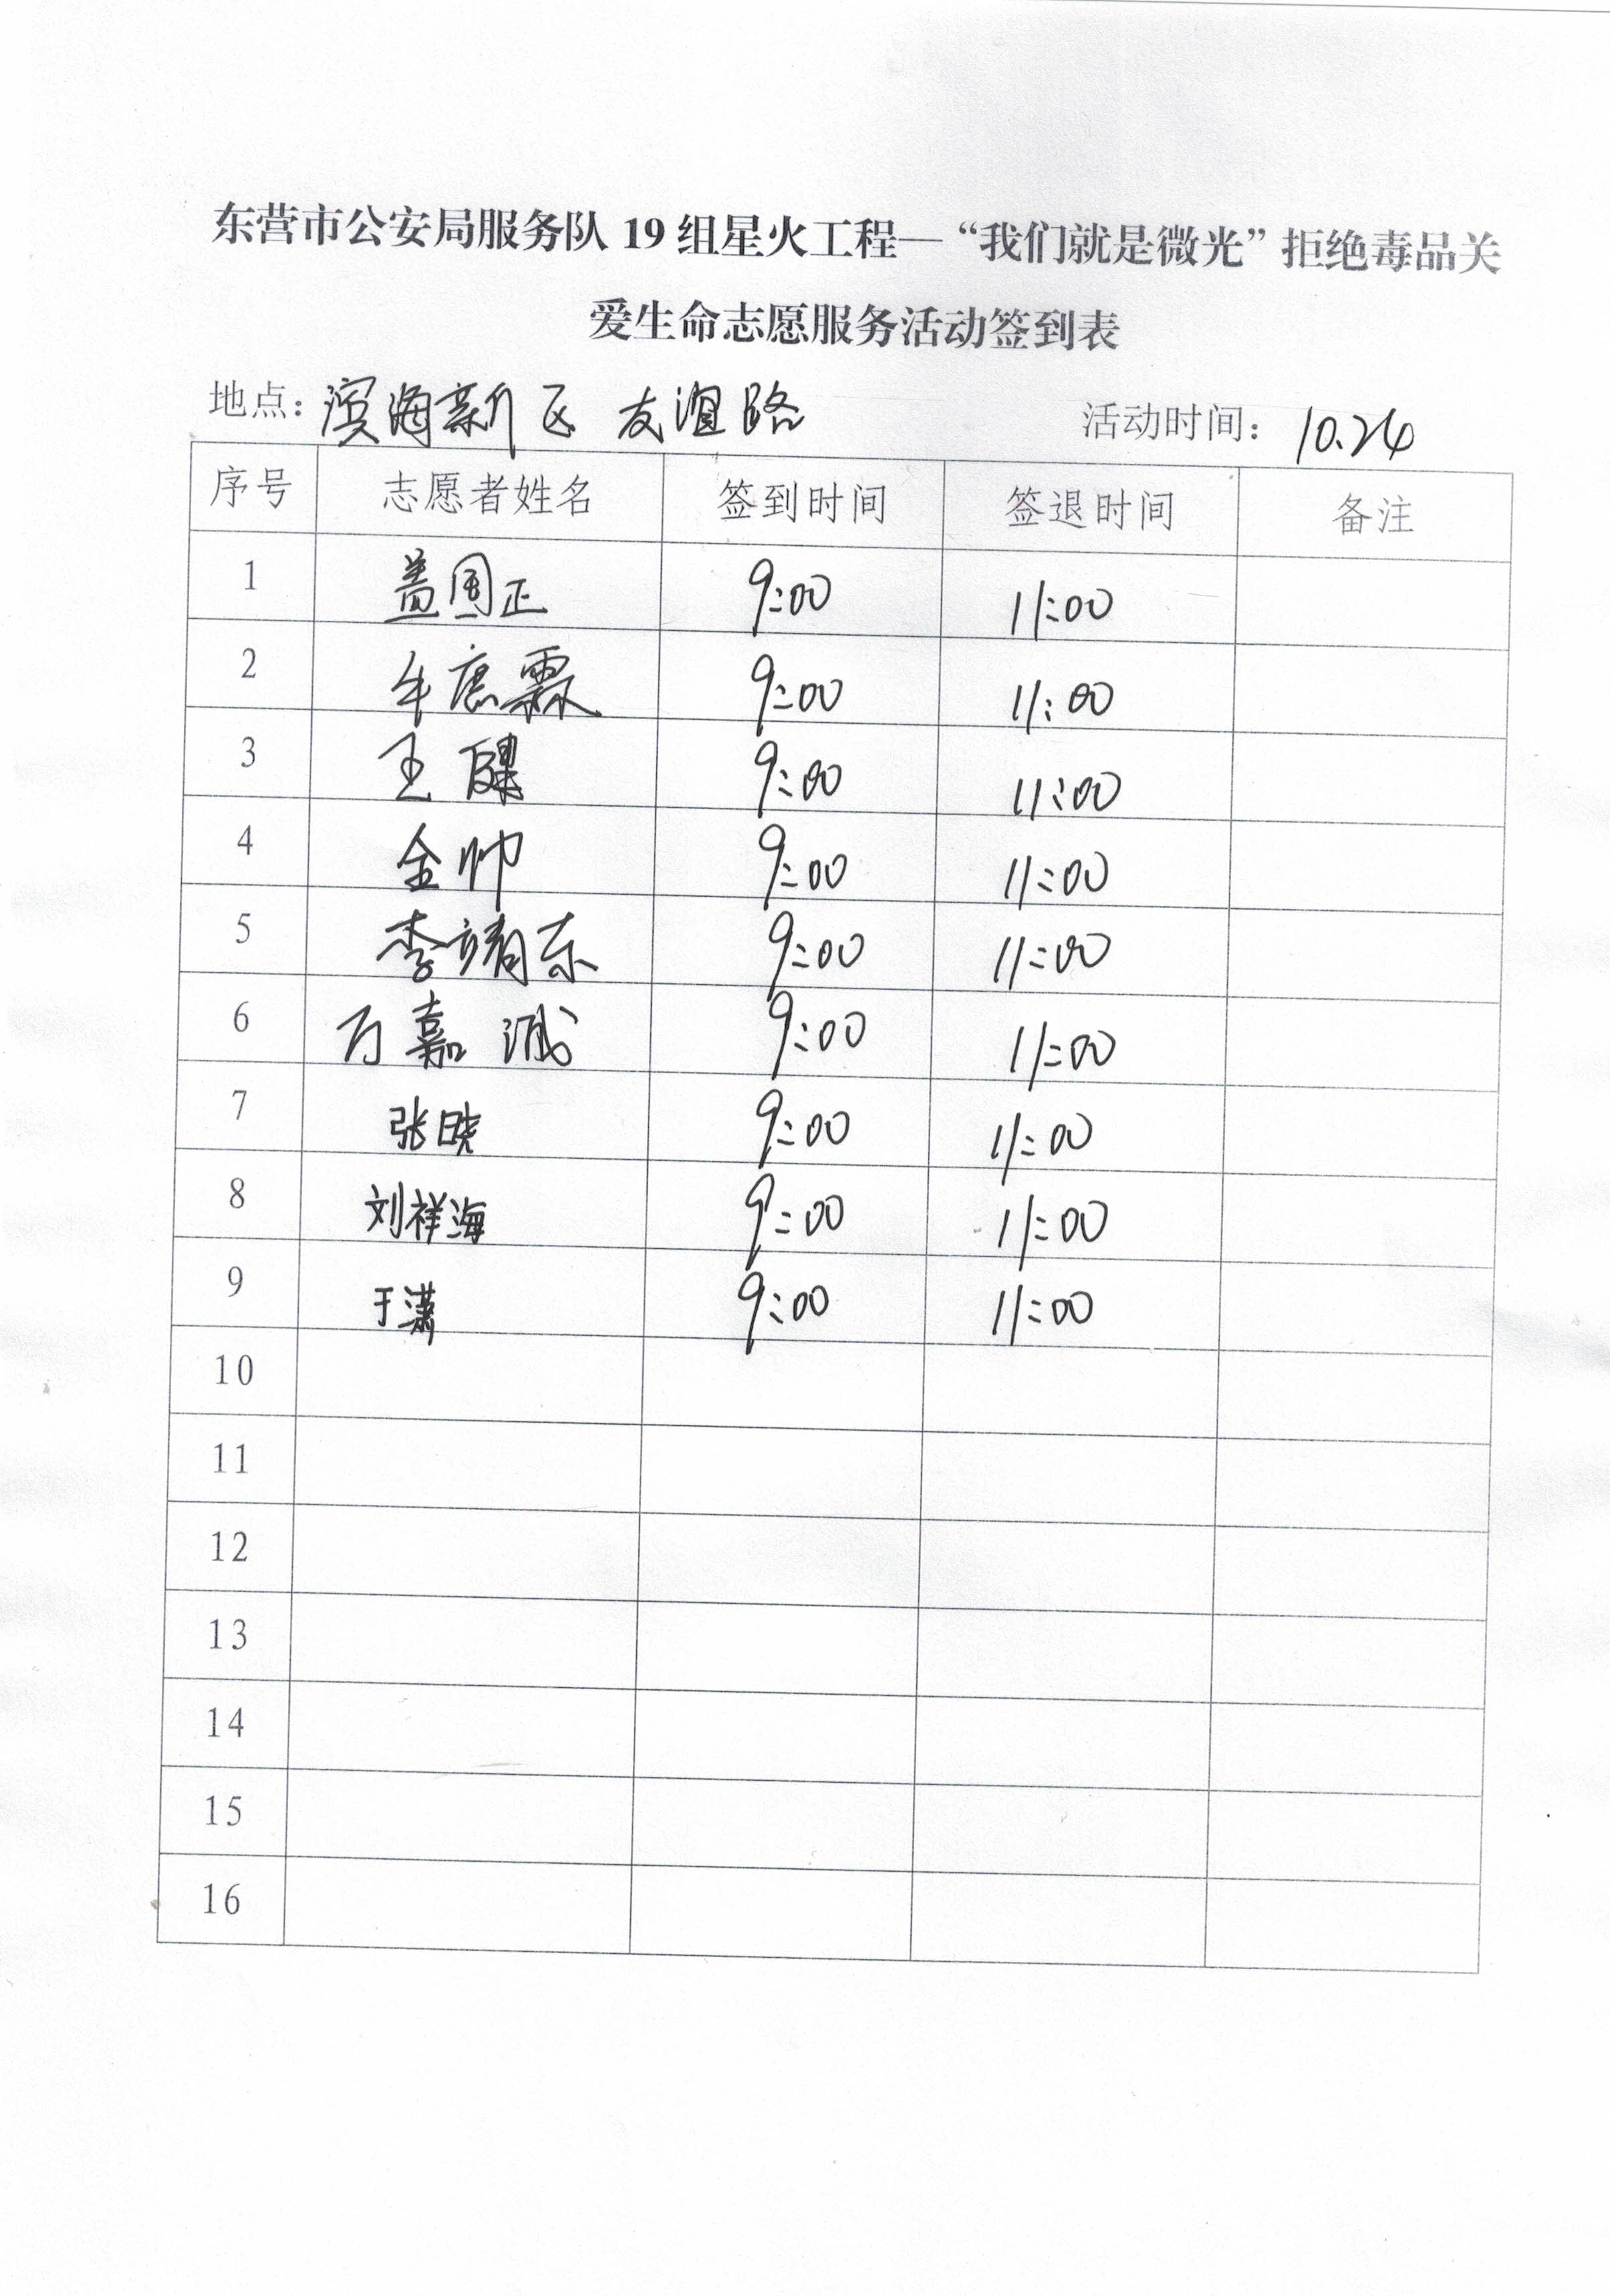 东营市公安局服务队 19 组星火工程—“我们就是微光”拒绝毒品关
爱生命志愿服务活动签到表
地点：滨海新区 友谊路 活动时间：10.24
序号 志愿者姓名 签到时间 签退时间 备注
1 盖国正 9:00 11:00
2 牟彦霖 9:00 11:00
3 王 9:00 11:00
4 金帅 9:00 11:00
5 李靖东 9:00 11:00
6 万嘉诚 9:00 11:00
7 张晓 9:00 11:00
8 刘祥海 9:00 11:00
9 于潇 9:00 11:00
10
11
12
13
14
15
16